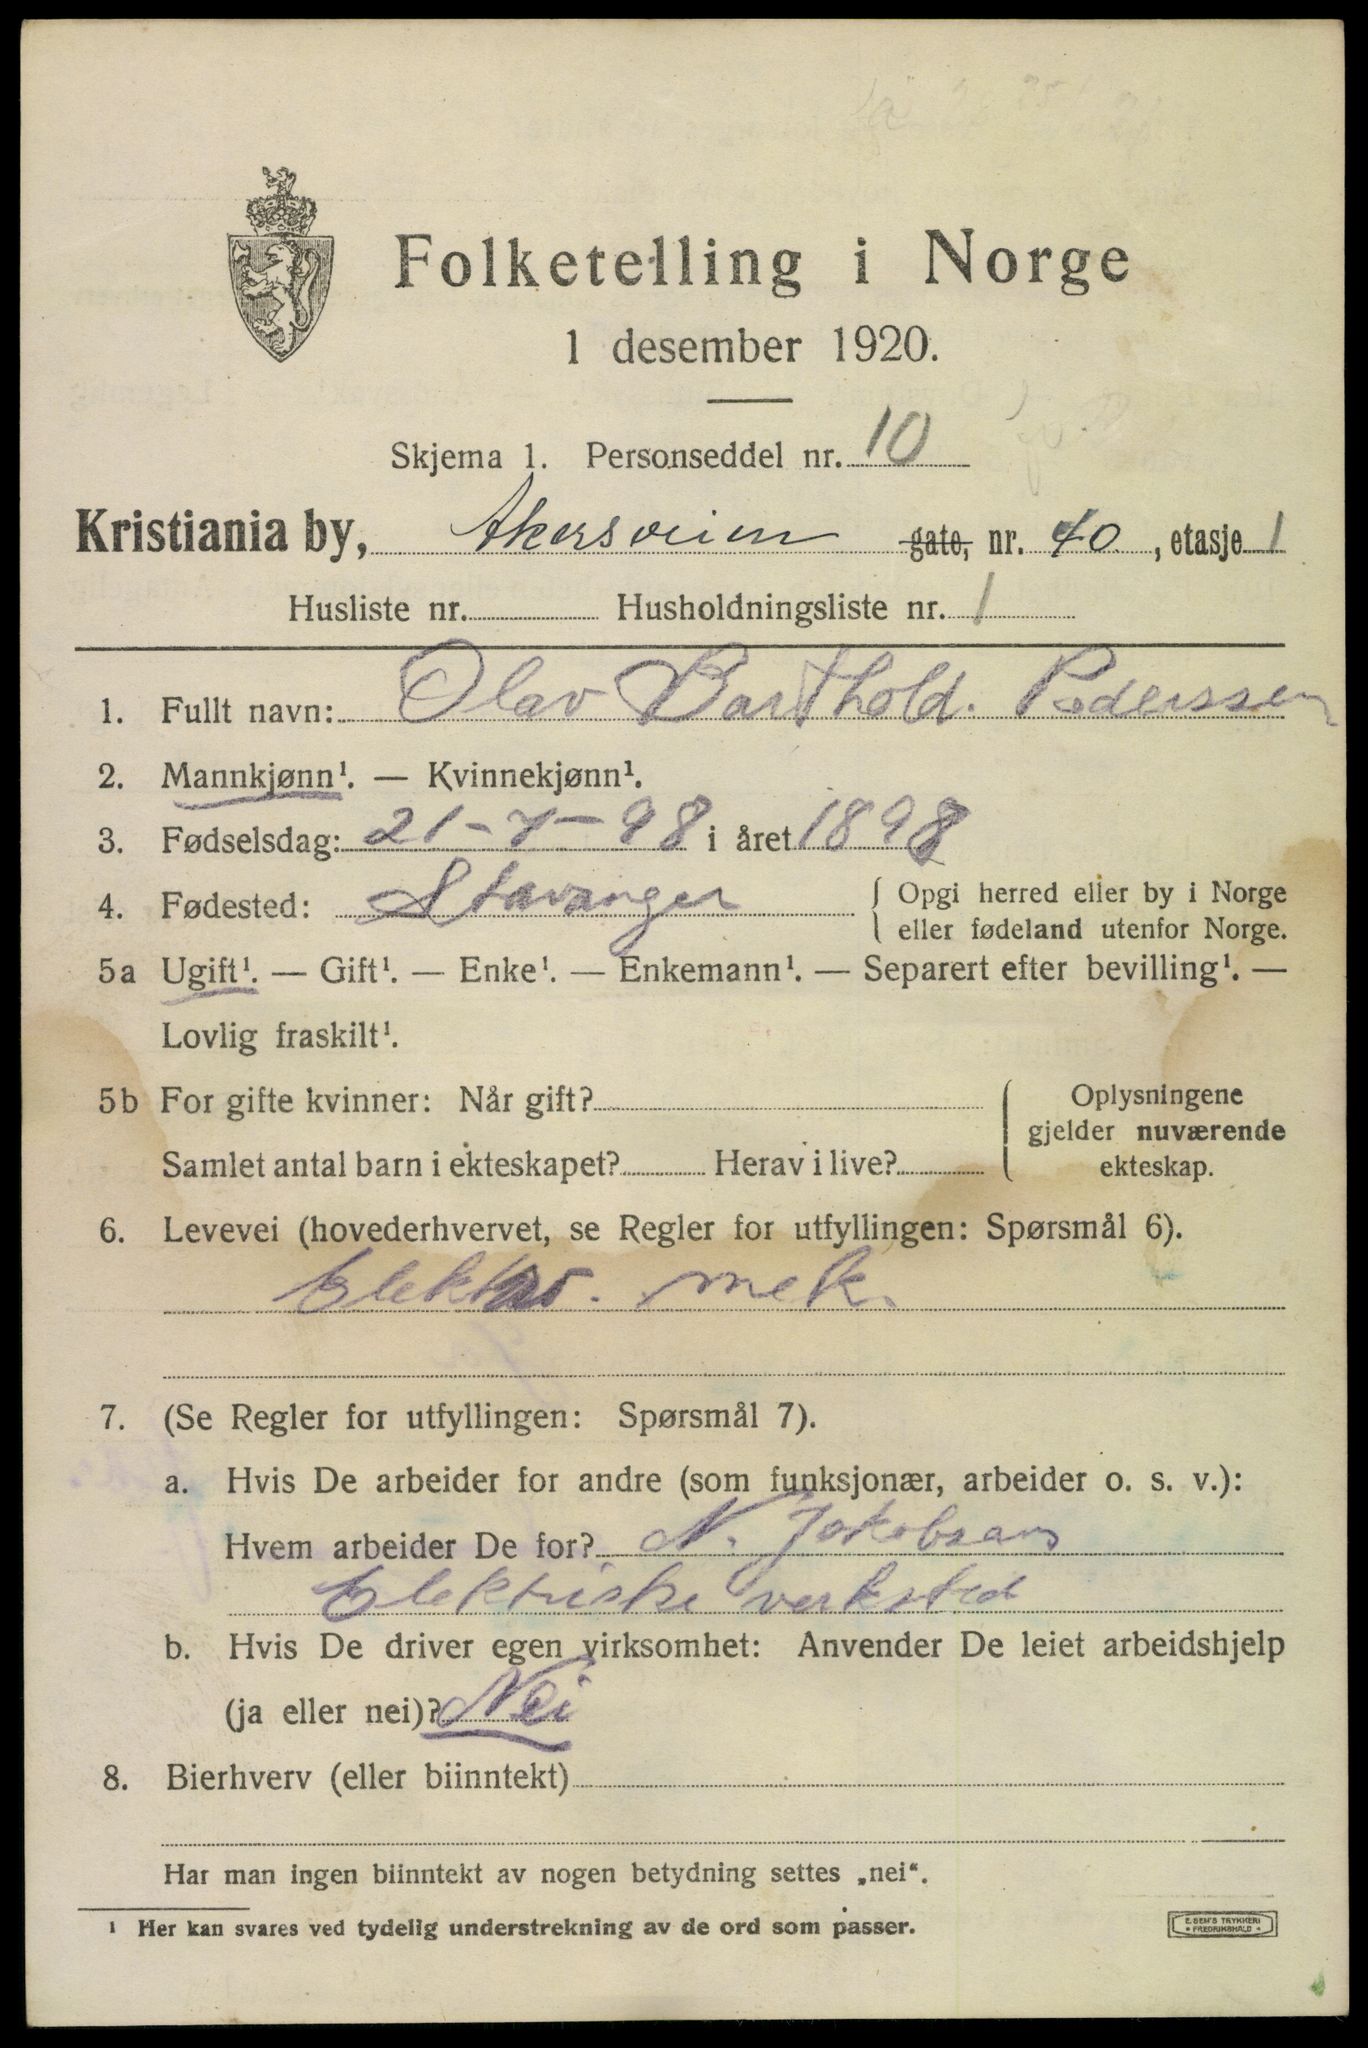 Folketelling i Norge
1 desember 1920.
Skjema 1. Personseddel nr. 10
Kristiania by, Akersveien gate, nr. 40, etasje 1
Husliste nr. Husholdningsliste nr. 1
1. Fullt navn: Olav Barthold. Pederssen
2. Mannkjønn¹. — Kvinnekjønn¹.
3. Fødselsdag: 21-7-98 i året 1898
4. Fødested: Stavanger { Opgi herred eller by i Norge
eller fødeland utenfor Norge.
5a Ugift¹. — Gift¹. — Enke¹. — Enkemann¹. — Separert efter bevilling¹. —
Lovlig fraskilt¹.
5b For gifte kvinner: Når gift? { Oplysningene
gjelder nuværende
Samlet antal barn i ekteskapet? Herav i live? ekteskap.
6. Levevei (hovederhvervet, se Regler for utfyllingen: Spørsmål 6).
Elektro. mek.
7. (Se Regler for utfyllingen: Spørsmål 7).
a. Hvis De arbeider for andre (som funksjonær, arbeider o. s. v.):
Hvem arbeider De for? N. Jakobsens
Elektriske verksted
b. Hvis De driver egen virksomhet: Anvender De leiet arbeidshjelp
(ja eller nei)? Nei
8. Bierhverv (eller biinntekt)
Har man ingen biinntekt av nogen betydning settes „nei“.
¹ Her kan svares ved tydelig understrekning av de ord som passer.
E. SEM'S TRYKKERI
• FREDRIKSHALD •